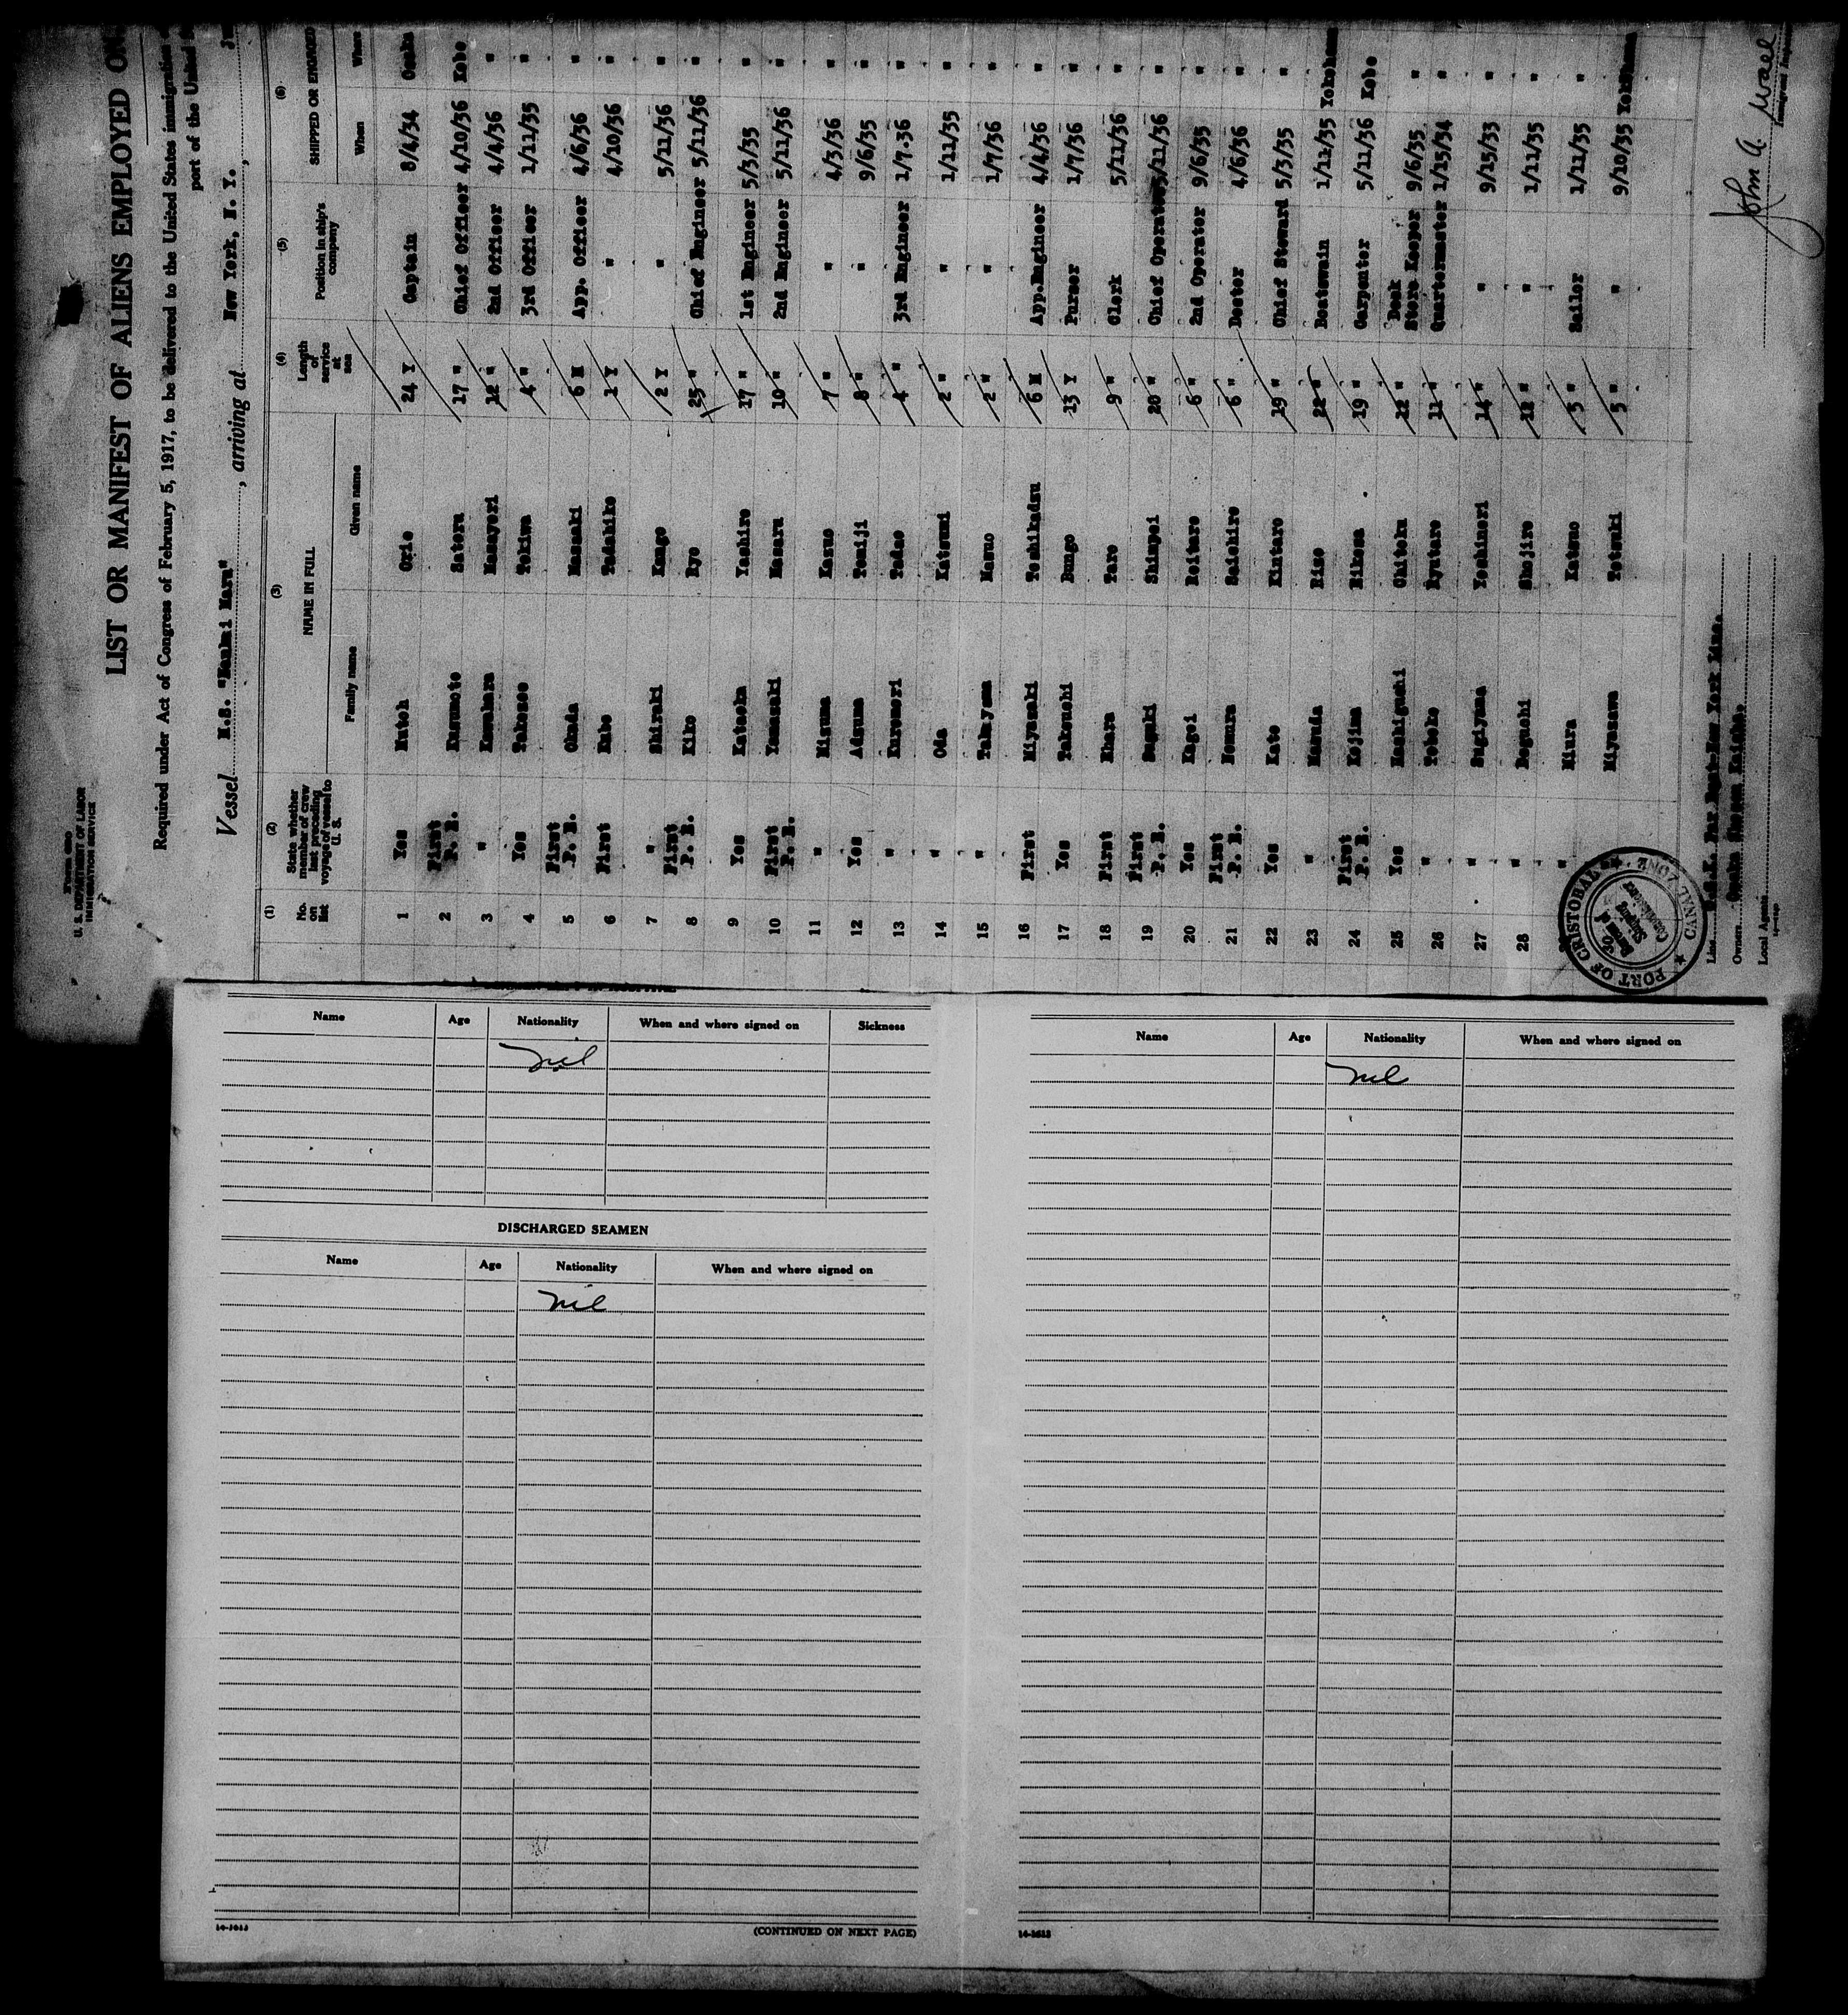 Form 680
U. S. DEPARTMENT OF LABOR
IMMIGRATION SERVICE
LIST OR MANIFEST OF ALIENS EMPLOYED ON
Required under Act of Congress of February 5, 1917, to be delivered to the United States immigration
port of the United
Vessel M.S. "Nankai Maru", arriving at New York, N. Y.,
(1) (2) (3) (4) (5) (6)
No. on list State whether member of crew last preceding voyage of vessel to U. S. NAME IN FULL Length of service at sea Position in ship's company SHIPPED OR ENGAGED
Family name Given name When Where
1 Yes Mutoh Orie 24 Y Captain 8/4/34 Osaka
2 First P. E. Kuramoto Satoru 17 " Chief Officer 4/10/36 Kobe
3 " Kuwahara Masayori 12 " 2nd Officer 4/4/36 "
4 Yes Takasee Tokiwa 4 " 3rd Officer 1/11/35 "
5 First P. E. Okada Masaaki 6 M App. Officer 4/6/36 "
6 First Kabe Tadahiko 1 Y " 4/10/36 "
7 " Shiraki Kango 2 Y " 5/11/36 "
8 First P. E. Kiko Ryo 25 " Chief Engineer 5/11/36 "
9 Yes Kataoka Yashiro 17 " 1st Engineer 5/3/35 "
10 First P. E. Yamasaki Masaru 10 " 2nd Engineer 5/11/36 "
11 " Miguma Kazuo 7 " " 4/3/36 "
12 Yes Adzuma Tomiji 8 " " 9/6/35 "
13 " Kuremori Tadao 4 " 3rd Engineer 1/7.36 "
14 " Oda Katsumi 2 " " 1/11/35 "
15 " Takayama Masuo 2 " " 1/7/36 "
16 First Miyazaki Toshikadzu 6 M App.Engineer 4/4/36 "
17 Yes Takeuchi Bungo 13 Y Purser 1/7/36 "
18 First Ehara Taro 9 " Clerk 5/11/36 "
19 First P. E. Suzuki Shimpei 20 " Chief Operator 5/11/36 "
20 Yes Kagei Reitaro 6 " 2nd Operator 9/6/35 "
21 First P. E. Nomura Saichiro 6 " Doctor 4/6/36 "
22 Yes Kato Kintaro 19 " Chief Steward 5/3/35 "
23 " Maruda Rizo 22 " Boatswain 1/12/35 Yokohama
24 First P. E. Kojima Rikosa 19 " Carpenter 5/11/36 Kobe
25 Yes Hashiguchi Chitoku 22 " Deck Store Keeper 9/6/35 "
26 " Yokoke Ryutaro 11 " Quartermaster 1/15/34 "
27 " Sugiyama Yoshinori 14 " " 9/15/33 "
28 " Noguchi Shojiro 12 " " 1/11/35 "
" Miura Katsuo 5 " Sailor 1/11/35 "
Miyazawa Tetsuki 5 " " 9/10/35 Yokohama
PORT OF CRISTOBAL
CANAL ZONE
Shipping Commissioner
Line O.S.K. Far East-New York Line.
Owners Osaka Shosen Kaisha.
Local Agents
John A.
Name Age Nationality When and where signed on Sickness
nil
DISCHARGED SEAMEN
Name Age Nationality When and where signed on
nil
(CONTINUED ON NEXT PAGE)
Name Age Nationality When and where signed on
nil